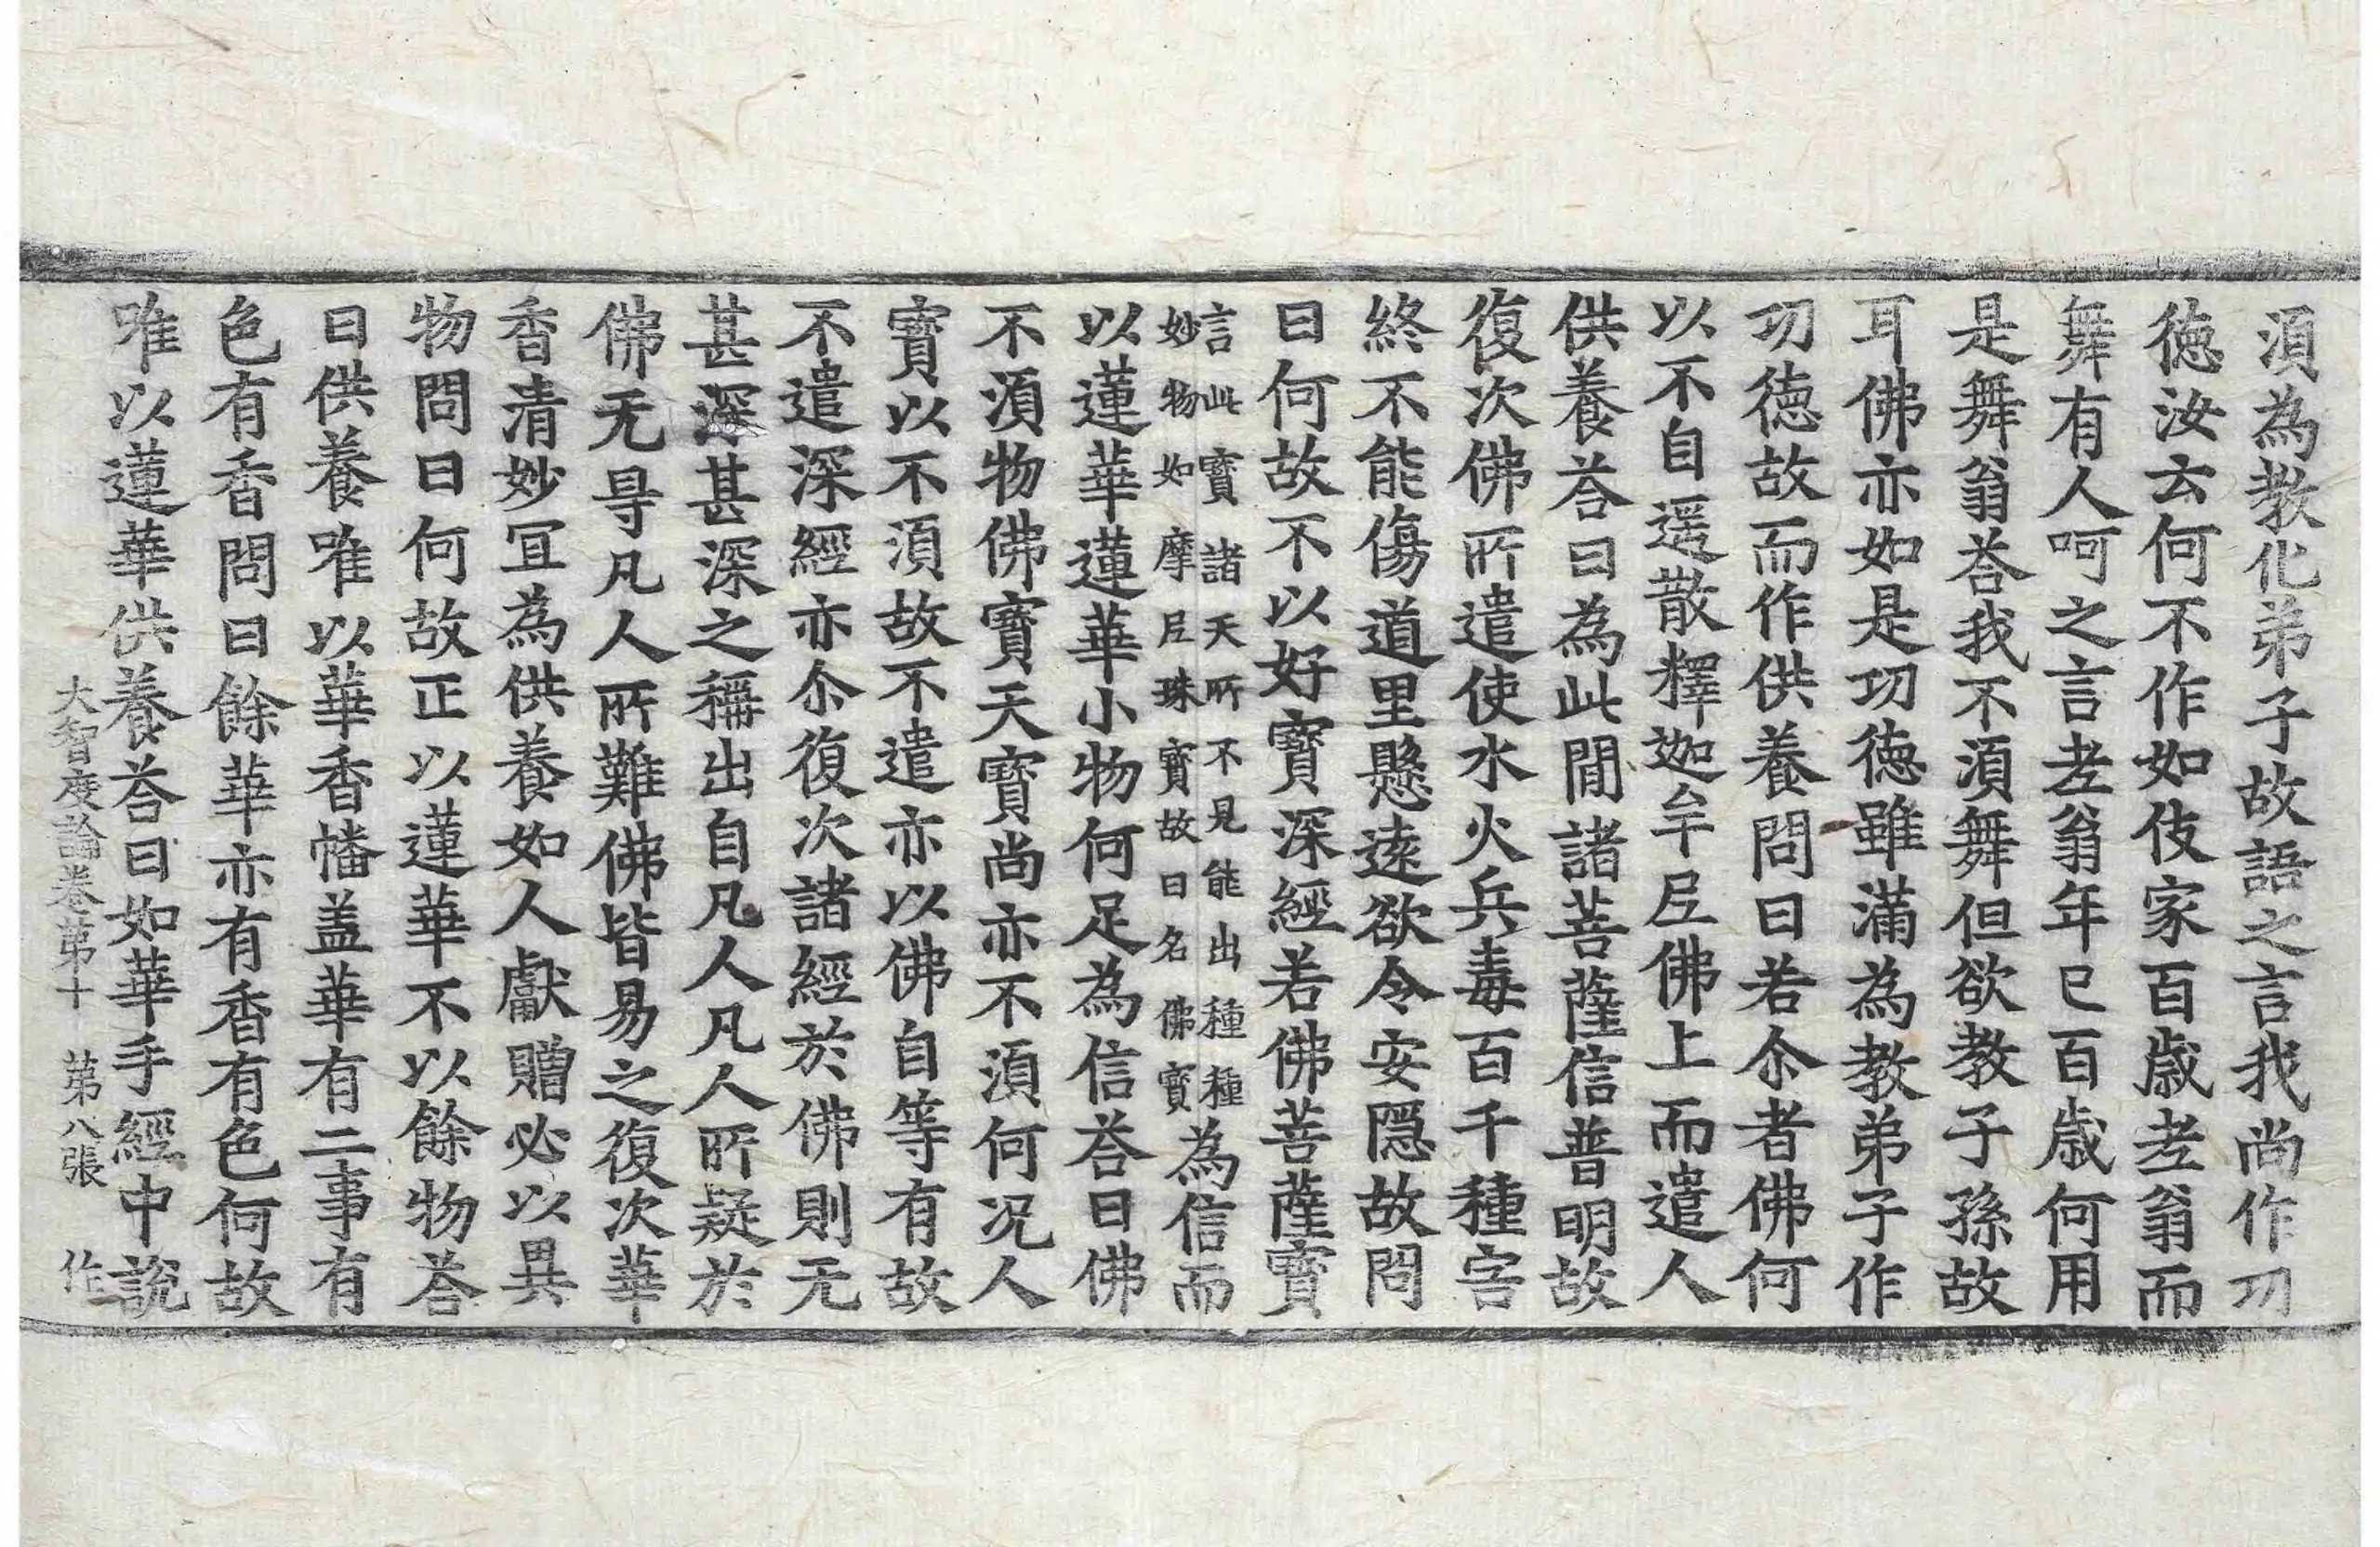 湏為教化弟子故語之言我尚作㓛
徳汝云何不作如伎家百歳老翁而
舞有人呵之言老翁年已百歳何用
是舞翁荅我不湏舞但欲教子孫故
耳佛亦如是㓛徳雖滿為教弟子作
㓛徳故而作供養問曰若尒者佛何
以不自遥散釋迦牟尼佛上而遣人
供養荅曰為此閒諸菩薩信普明故
復次佛所遣使水火兵毒百千種害
終不能傷道里懸逺欲令安隠故問
曰何故不以好寶深經若佛菩薩寶
言此寶諸天所不見能出種種
妙物如摩尼珠寶故曰名佛寶
為信而
以蓮華蓮華小物何足為信荅曰佛
不湏物佛寶天寶尚亦不湏何况人
寶以不湏故不遣亦以佛自等有故
不遣深經亦尒復次諸經於佛則无
甚深甚深之稱出自凡人凡人所疑於
佛无㝵凡人所難佛皆易之復次華
香清妙冝為供養如人獻贈必以異
物問曰何故正以蓮華不以餘物荅
曰供養唯以華香幡盖華有二事有
色有香問曰餘華亦有香有色何故
唯以蓮華供養荅曰如華手經中說
大智度論卷第十 第八張 作